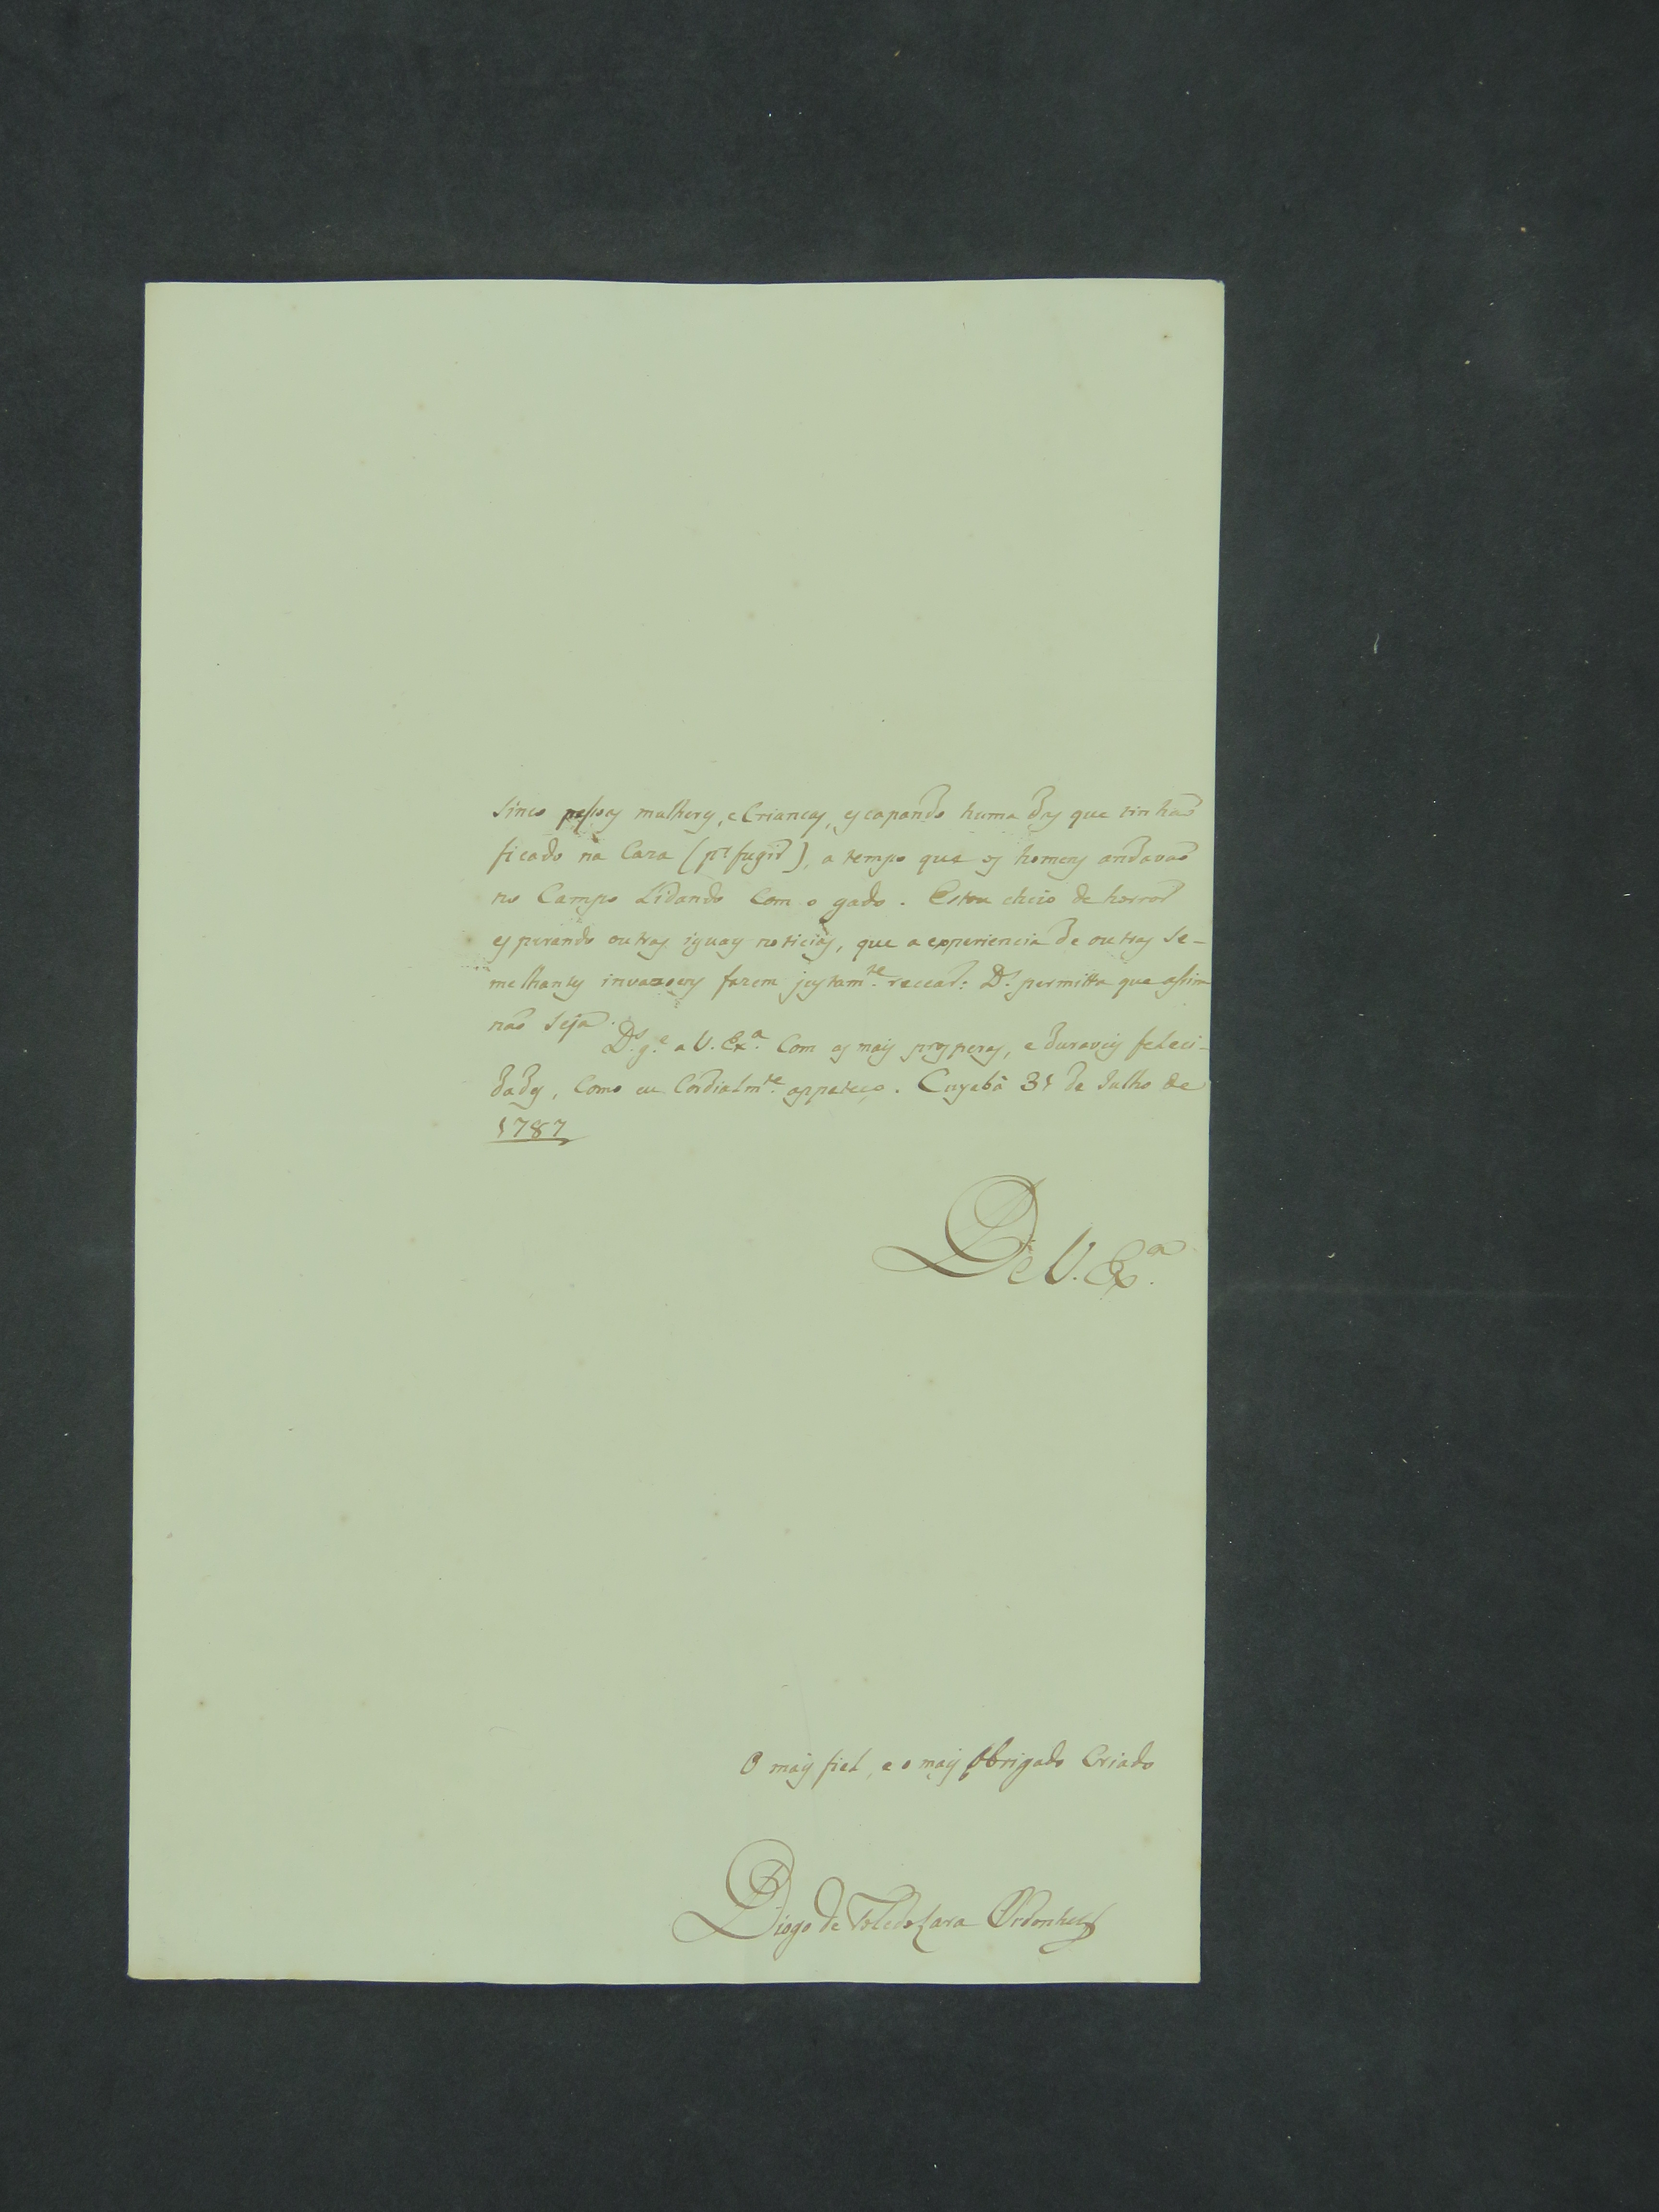 sinco pessoas mulheres, e Criancas, escapando huma das que tinhaõ
ficado na Caza (pr. fugir), a tempo que os homens andavaõ
no Campo Lidando Com o gado. Estou cheio de horror
esperando outras iguaes noticias, que a experiencia de outras se-
melhantes invazoens fazem justamte. recear: Ds. permitta que assim
naõ seja.
Ds. ge. a V. Exa. Com as mais prosperas, e duraveis feleci-
dades, Como eu Cordialmte. appeteço. Cuyabá 31 de Julho de
1787
De V. Exa.
O mais fiel, e o mais obrigado Criado
Diogo de Toledo Lara Ordonhes